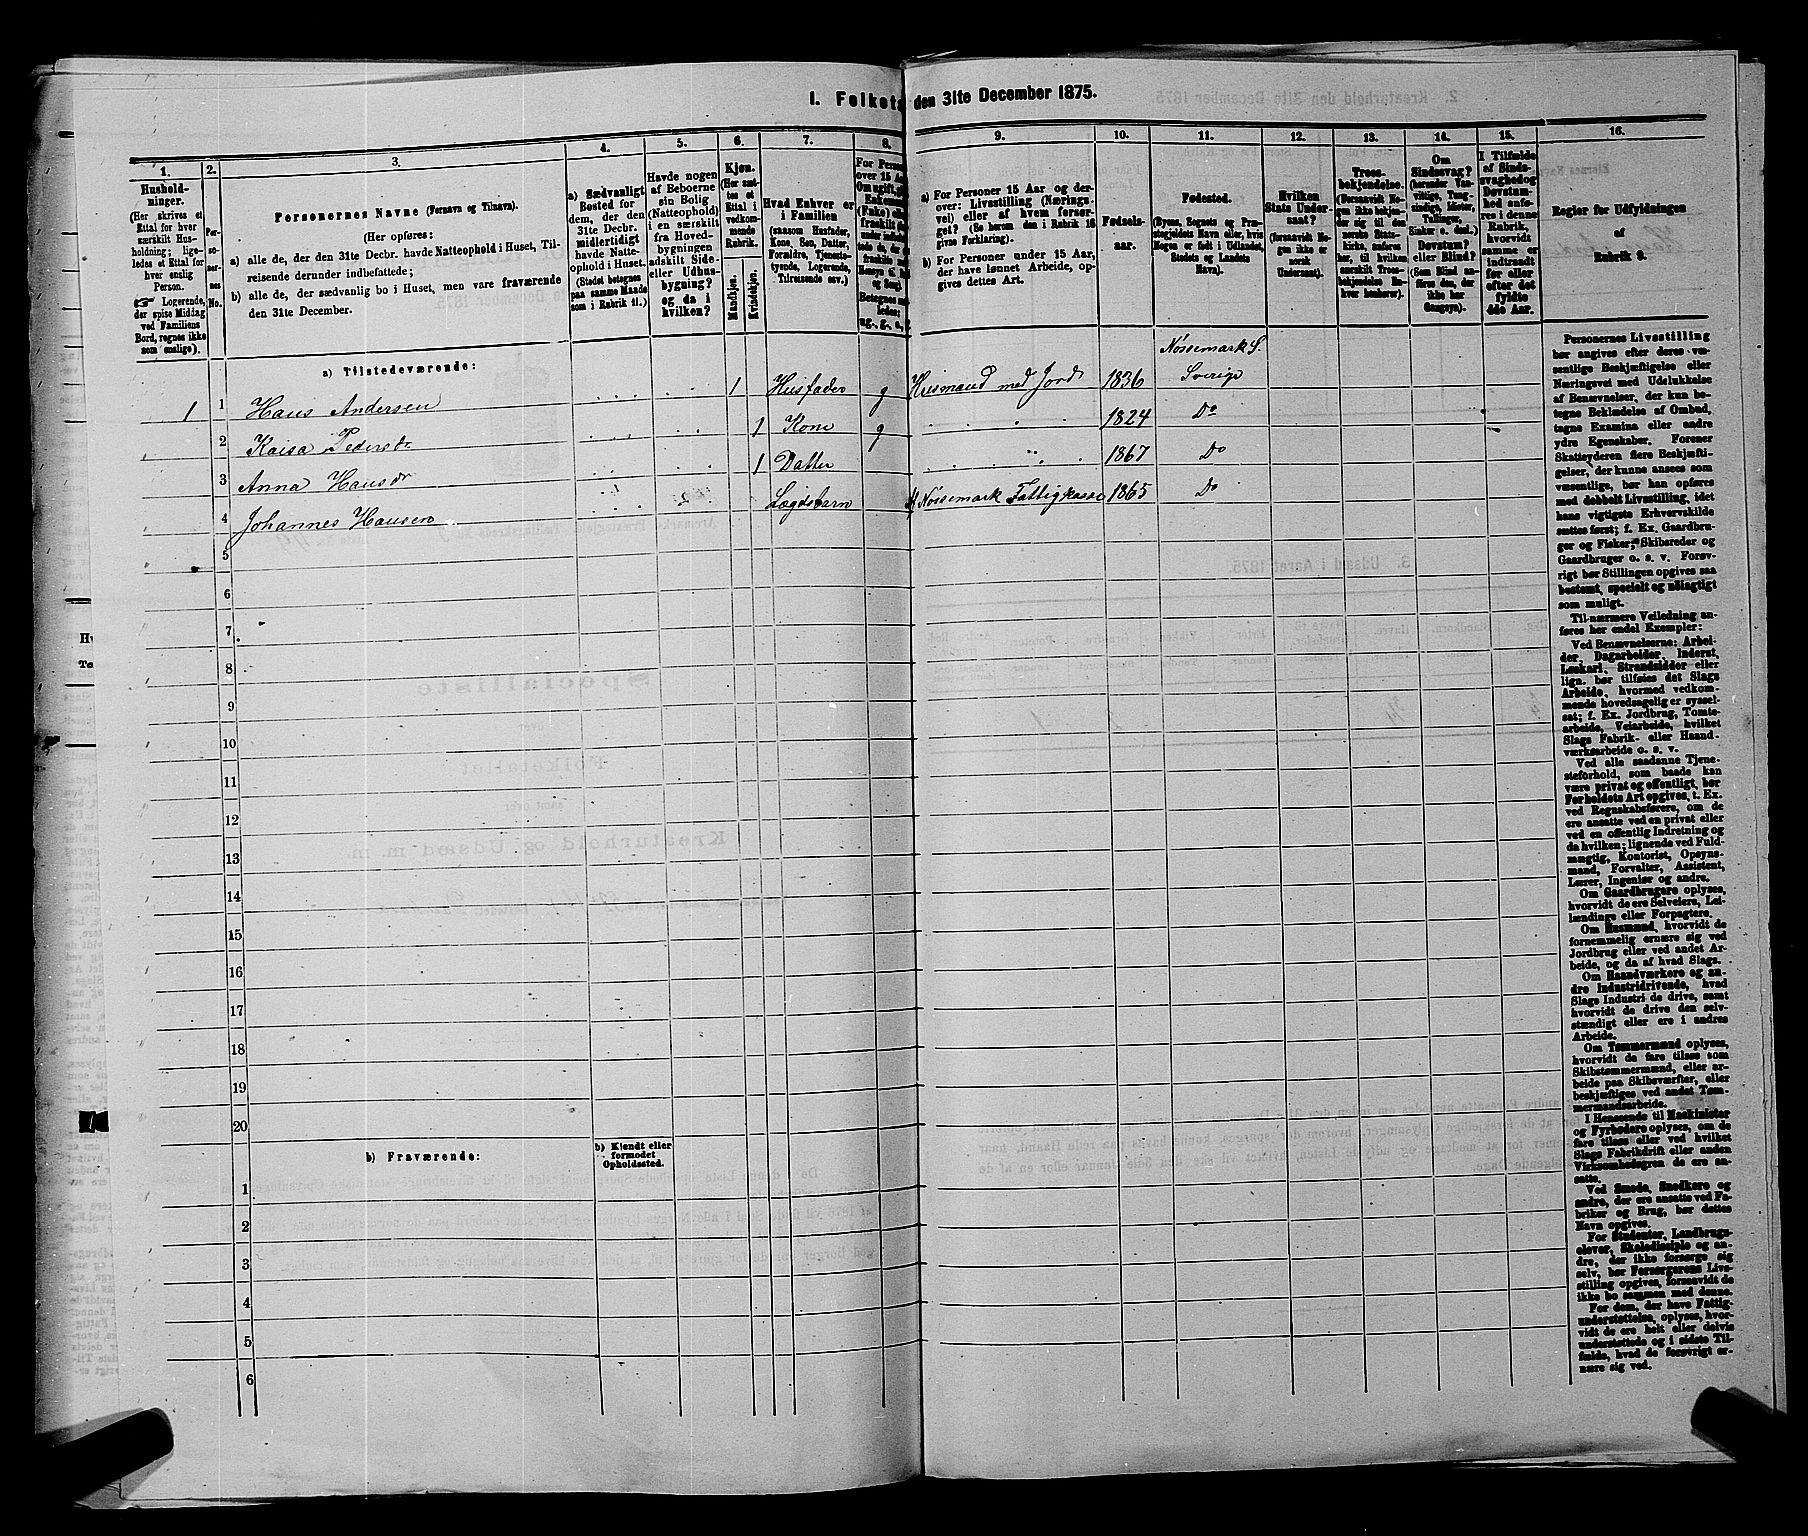 1. Folketæ den 31te December 1875.
1.
Hushold-
ninger.
(Her skrives et
Ettal for hver
særskilt Hus-
holdning; lige-
ledes et Ettal for
hver enslig
Person.
☞ Logerende,
der spise Middag
ved Familiens
Bord, regnes ikke
som enslige).
2.
Per-
so-
ner-
nes
No.
3.
Personernes Navne (Fornavn og Tilnavn).
(Her opføres:
a) alle de, der den 31te Decbr. havde Natteophold i Huset, Til-
reisende derunder indbefattede;
b) alle de, der sædvanlig bo i Huset, men vare fraværende
den 31te December.
4.
a) Sædvanligt
Bosted for
dem, der den
31te Decbr.
midlertidigt
havde Natte-
ophold i Huset.
(Stedet betegnes
paa samme Maade
som i Rubrik 11.)
5.
Havde nogen
af Beboerne
sin Bolig
(Natteophold)
i en særskilt
fra Hoved-
bygningen
adskilt Side-
eller Udhus-
bygning?
og da i
hvilken?
6.
Kjøn.
(Her sæt-
tes et
Ettal i
vedkom-
mende
Rubrik.
Mandkjøn.
Kvindekjøn.
7.
Hvad Enhver er
i Familien
(saasom Husfader,
Kone, Søn, Datter,
Forældre, Tjeneste-
tyende, Logerende,
Tilreisende osv.)
8.
For Persone
over 15 Aar
9.
a) For Personer 15 Aar og der-
over: Livsstilling (Nærings-
vei) eller af hvem forsør-
get? (Se herom den i Rubrik 16
givne Forklaring).
b) For Personer under 15 Aar,
der have lønnet Arbeide, op-
gives dettes Art.
10.
Fødsels-
aar.
11.
Fødested.
(Byens, Sognets og Præ-
stegjeldets Navn eller, hvis
Nogen er født i Udlandet,
Stedets og Landets
Navn).
12.
Hvilken
Stats Under-
saat?
(forsaavidt No-
gen ikke er
norsk
Undersaat).
13.
Troes-
bekjendelse.
(Forsaavidt No-
gen ikke bekjen-
der sig til den
norske Stats-
kirke, anføres
her, til hvilken
særskilt Troes-
bekjendelse En-
hver henhører).
14.
Om
Sindssvag?
(herunder Van-
vittige, Tung-
sindige, Idioter,
Tullinger,
Sinker o. desl.)
Døvstum?
eller Blind?
(Som Blind an-
føres den, der
ikke har
Gangsyn).
15.
I Tilfælde
af Sinds-
svaghed og
Døvstum-
hed anfø-
res i denne
Rubrik,
hvorvidt
samme er
indtraadt
før eller
efter det
fyldte
4de Aar.
16.
Regler for Udfyldningen
af
Rubrik 9.
a) Tilstedeværende:
Nössemark S.
1 1 Hans Andersen 1 Husfader g Husmand med Jord 1836 Sverige
2 Kaisa Pedersdr 1 Kone g 1824 Do
3 Anna Hansdr 1 Datter 1867 Do
4 Johannes Hansen Lægdsbarn Af Nössemark Fattigkasse 1865 Do
5
6
7
8
9
10
11
12
13
14
15
16
17
18
19
20
b) Fraværende:
b) Kjendt eller
formodet
Opholdssted.
1
2
3
4
5
6
Personernes Livsstilling
bør angives efter deres væ-
sentlige Beskjæftigelse eller
Næringsvei med Udelukkelse
af Benævnelser, der kun be-
tegne Beklædelse af Ombud,
tagne Examina eller andre
ydre Egenskaber. Forener
Skatteyderen flere Beskjæfti-
gelser, der kunne ansees som
væsentlige, bør han opføres
med dobbelt Livsstilling, idet
hans vigtigste Erhvervskilde
sættes først; f. Ex. Gaardbru-
ger og Fisker; Skibsreder og
Gaardbruger o. s. v. Forøv-
rigt bør Stillingen opgives saa
bestemt, specielt og nøiagtigt
som muligt.
Til nærmere Veiledning an-
føres her endel Exempler:
Ved Benævnelserne: Arbei-
der, Dagarbeider, Inderst,
Løskarl, Strandsidder eller
lign. bør tilføies det Slags
Arbeide, hvormed vedkom-
mende hovedsagelig er syssel-
sat; f. Ex. Jordbrug, Tomte-
arbeide, Veiarbeide, hvilket
Slags Fabrik- eller Haand-
værksarbeide o. s. v.
Ved alle saadanne Tjene-
steforhold, som baade kan
være privat og offentligt, bør
Forholdets Art opgives, t. Ex.
ved Regnskabsførere, om de
ere ansatte ved en privat eller
ved en offentlig Indretning og
da hvilken; lignende ved Fuld-
mægtig, Kontorist, Opsyns-
mand, Forvalter, Assistent,
Lærer, Ingeniør og andre.
Om Gaardbrugere oplyses,
hvorvidt de ere Selveiere, Lei-
lændinge eller Forpagtere.
Om Husmænd, hvorvidt de
fornemmelig ernære sig ved
Jordbrug eller ved andet Ar-
beide, og da af hvad Slags.
Om Haandværkere og an-
dre Industridrivende, hvad
Slags Industri de drive, samt
hvorvidt de drive den selv-
stændigt eller ere i andres
Arbeide.
Om Tømmermænd oplyses,
hvorvidt de fare tilsøs som
Skibstømmermænd, eller ar-
beide paa Skibsværfter, eller
beskjæftiges ved andet Tøm-
mermandsarbeide.
I Henseende til Maskinister
og Fyrbødere oplyses, om de
fare tilsøs eller ved hvilket
Slags Fabrikdrift eller anden
Virksomhedsgren de ere an-
satte.
Ved Smede, Snedkere og
andre, der ere ansatte ved Fa-
briker og Brug, bør dettes
Navn opgives.
For Studenter, Landbrugs-
elever, Skoledisciple og an-
dre, der ikke forsørge sig
selv, bør Forsørgerens Livs-
stilling opgives, forsaavidt de
ikke bo sammen med denne.
For dem, der have Fattig-
understøttelse, oplyses, hvor-
vidt de ere helt eller delvis
understøttede og i sidste Til-
fælde, hvad de forøvrigt er-
nære sig ved.